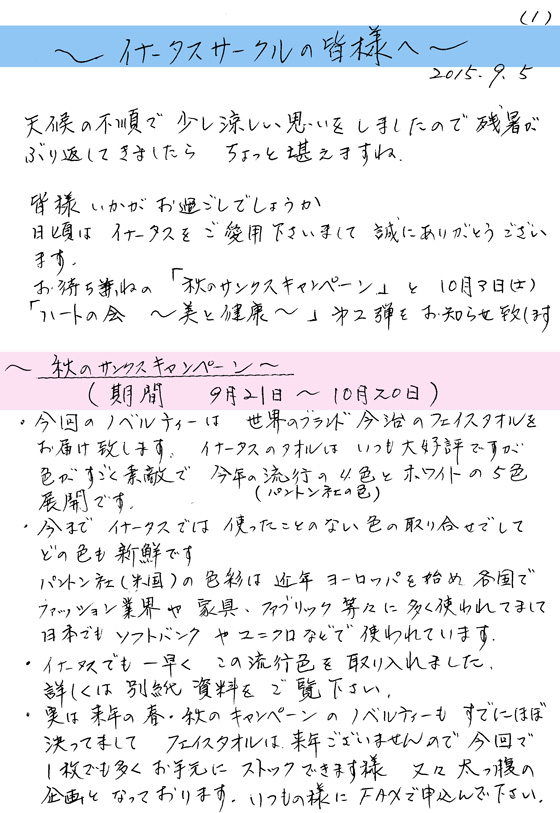 (1)
〜 イナータスサークルの皆様へ 〜
2015.9.5
天候の不順で 少し涼しい思いをしましたので 残暑が
ぶり返してきましたら ちょっと堪えますね.
皆様 いかがお過ごしでしょうか
日頃は イナータスをご愛用下さいまして 誠にありがとうござい
ます.
お待ち兼ねの「秋のサンクスキャンペーン」と 10月3日(土)
「ハートの会 〜美と健康〜」第2弾を お知らせ致します
〜 秋のサンクスキャンペーン 〜
( 期間 9月21日 〜 10月20日 )
・今回のノベルティーは 世界のブランド 今治のフェイスタオルを
お届け致します. イナータスのタオルは いつも大好評ですが
色がすごく素敵で 今年の流行の4色とホワイトの5色
(パントン社の色)
展開です.
・今まで イナータスでは 使ったことのない色の取り合せでして
どの色も新鮮です
パントン社(米国)の色彩は 近年 ヨーロッパを始め 各国で
ファッション業界や 家具、ファブリック等々に多く使われてまして
日本でもソフトバンクやユニクロなどで使われています.
・イナータスでも一早く この流行色を取り入れました.
詳しくは 別紙 資料をご覧下さい.
・実は来年の春・秋のキャンペーンの ノベルティーも すでにほぼ
決ってまして フェイスタオルは 来年ございませんので 今回で
1枚でも多くお手元に ストックできます様 又々 太っ腹の
企画と なっております. いつもの様に FAXで申込んで下さい.